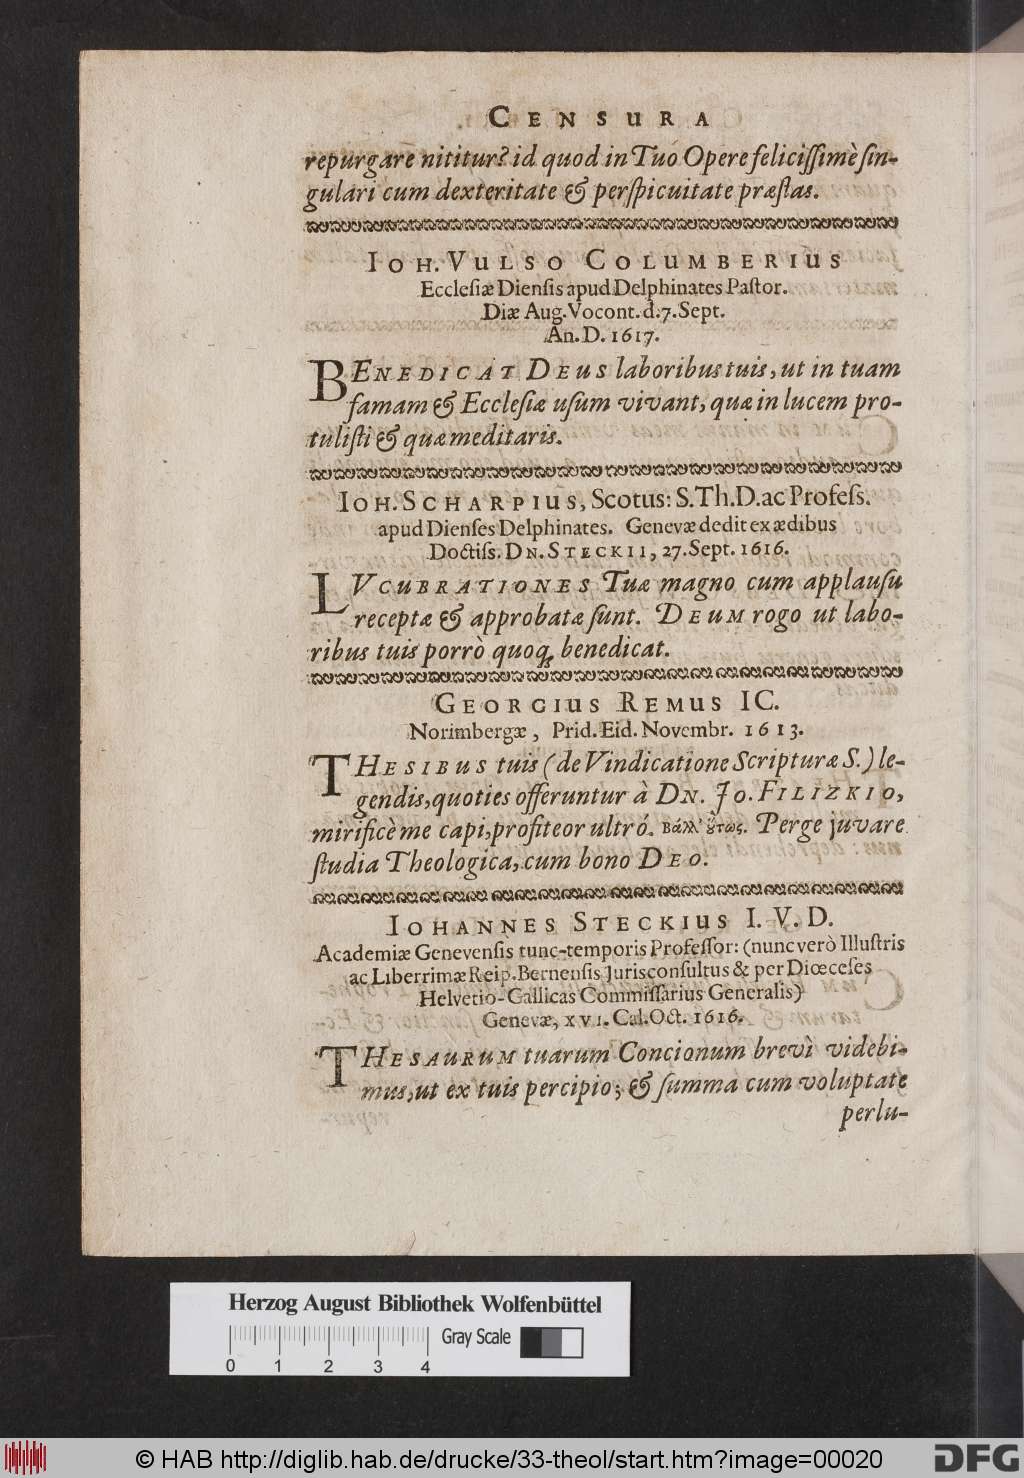 CENSURA
repurgare nititur? id quod in Tuo Opere felicissimè sin-
gulari cum dexteritate & perspicuitate præstas.
IOH. VULSO COLUMBERIUS
Ecclesiæ Diensis apud Delphinates Pastor.
Diæ Aug. Vocont. d. 7. Sept.
An. D. 1617.
BENEDICAT DEUS laboribus tuis, ut in tuam
famam & Ecclesiæ usum vivant, quæ in lucem pro-
tulisti & quæ meditaris.
IOH. SCHARPIUS, Scotus: S. Th. D. ac Profess.
apud Dienses Delphinates. Genevæ dedit ex ædibus
Doctiss. DN. STECKII, 27. Sept. 1616.
LVCUBRATIONES Tuæ magno cum applausu
receptæ & approbatæ sunt. DEUM rogo ut labo-
ribus tuis porrò quoq; benedicat.
GEORGIUS REMUS IC.
Norimbergæ, Prid. Eid. Novembr. 1613.
THESIBUS tuis (de Vindicatione Scripturæ S.) le-
gendis, quoties offeruntur à DN. Jo. FILIZKIO,
mirificè me capi, profiteor ultró. Βάλλ' οὕτως. Perge juvare
studia Theologica, cum bono DEO.
IOHANNES STECKIUS I. V. D.
Academiæ Genevensis tunc-temporis Professor: (nunc verò Illustris
ac Liberrimæ Reip. Bernensis Jurisconsultus & per Diœceses
Helvetio-Gallicas Commissarius Generalis)
Genevæ, XVI. Cal. Oct. 1616.
THESAURUM tuarum Concionum brevì videbi-
mus, ut ex tuis percipio; & summa cum voluptate
perlu-
Herzog August Bibliothek Wolfenbüttel
Gray Scale
0 1 2 3 4
© HAB http://diglib.hab.de/drucke/33-theol/start.htm?image=00020
DFG